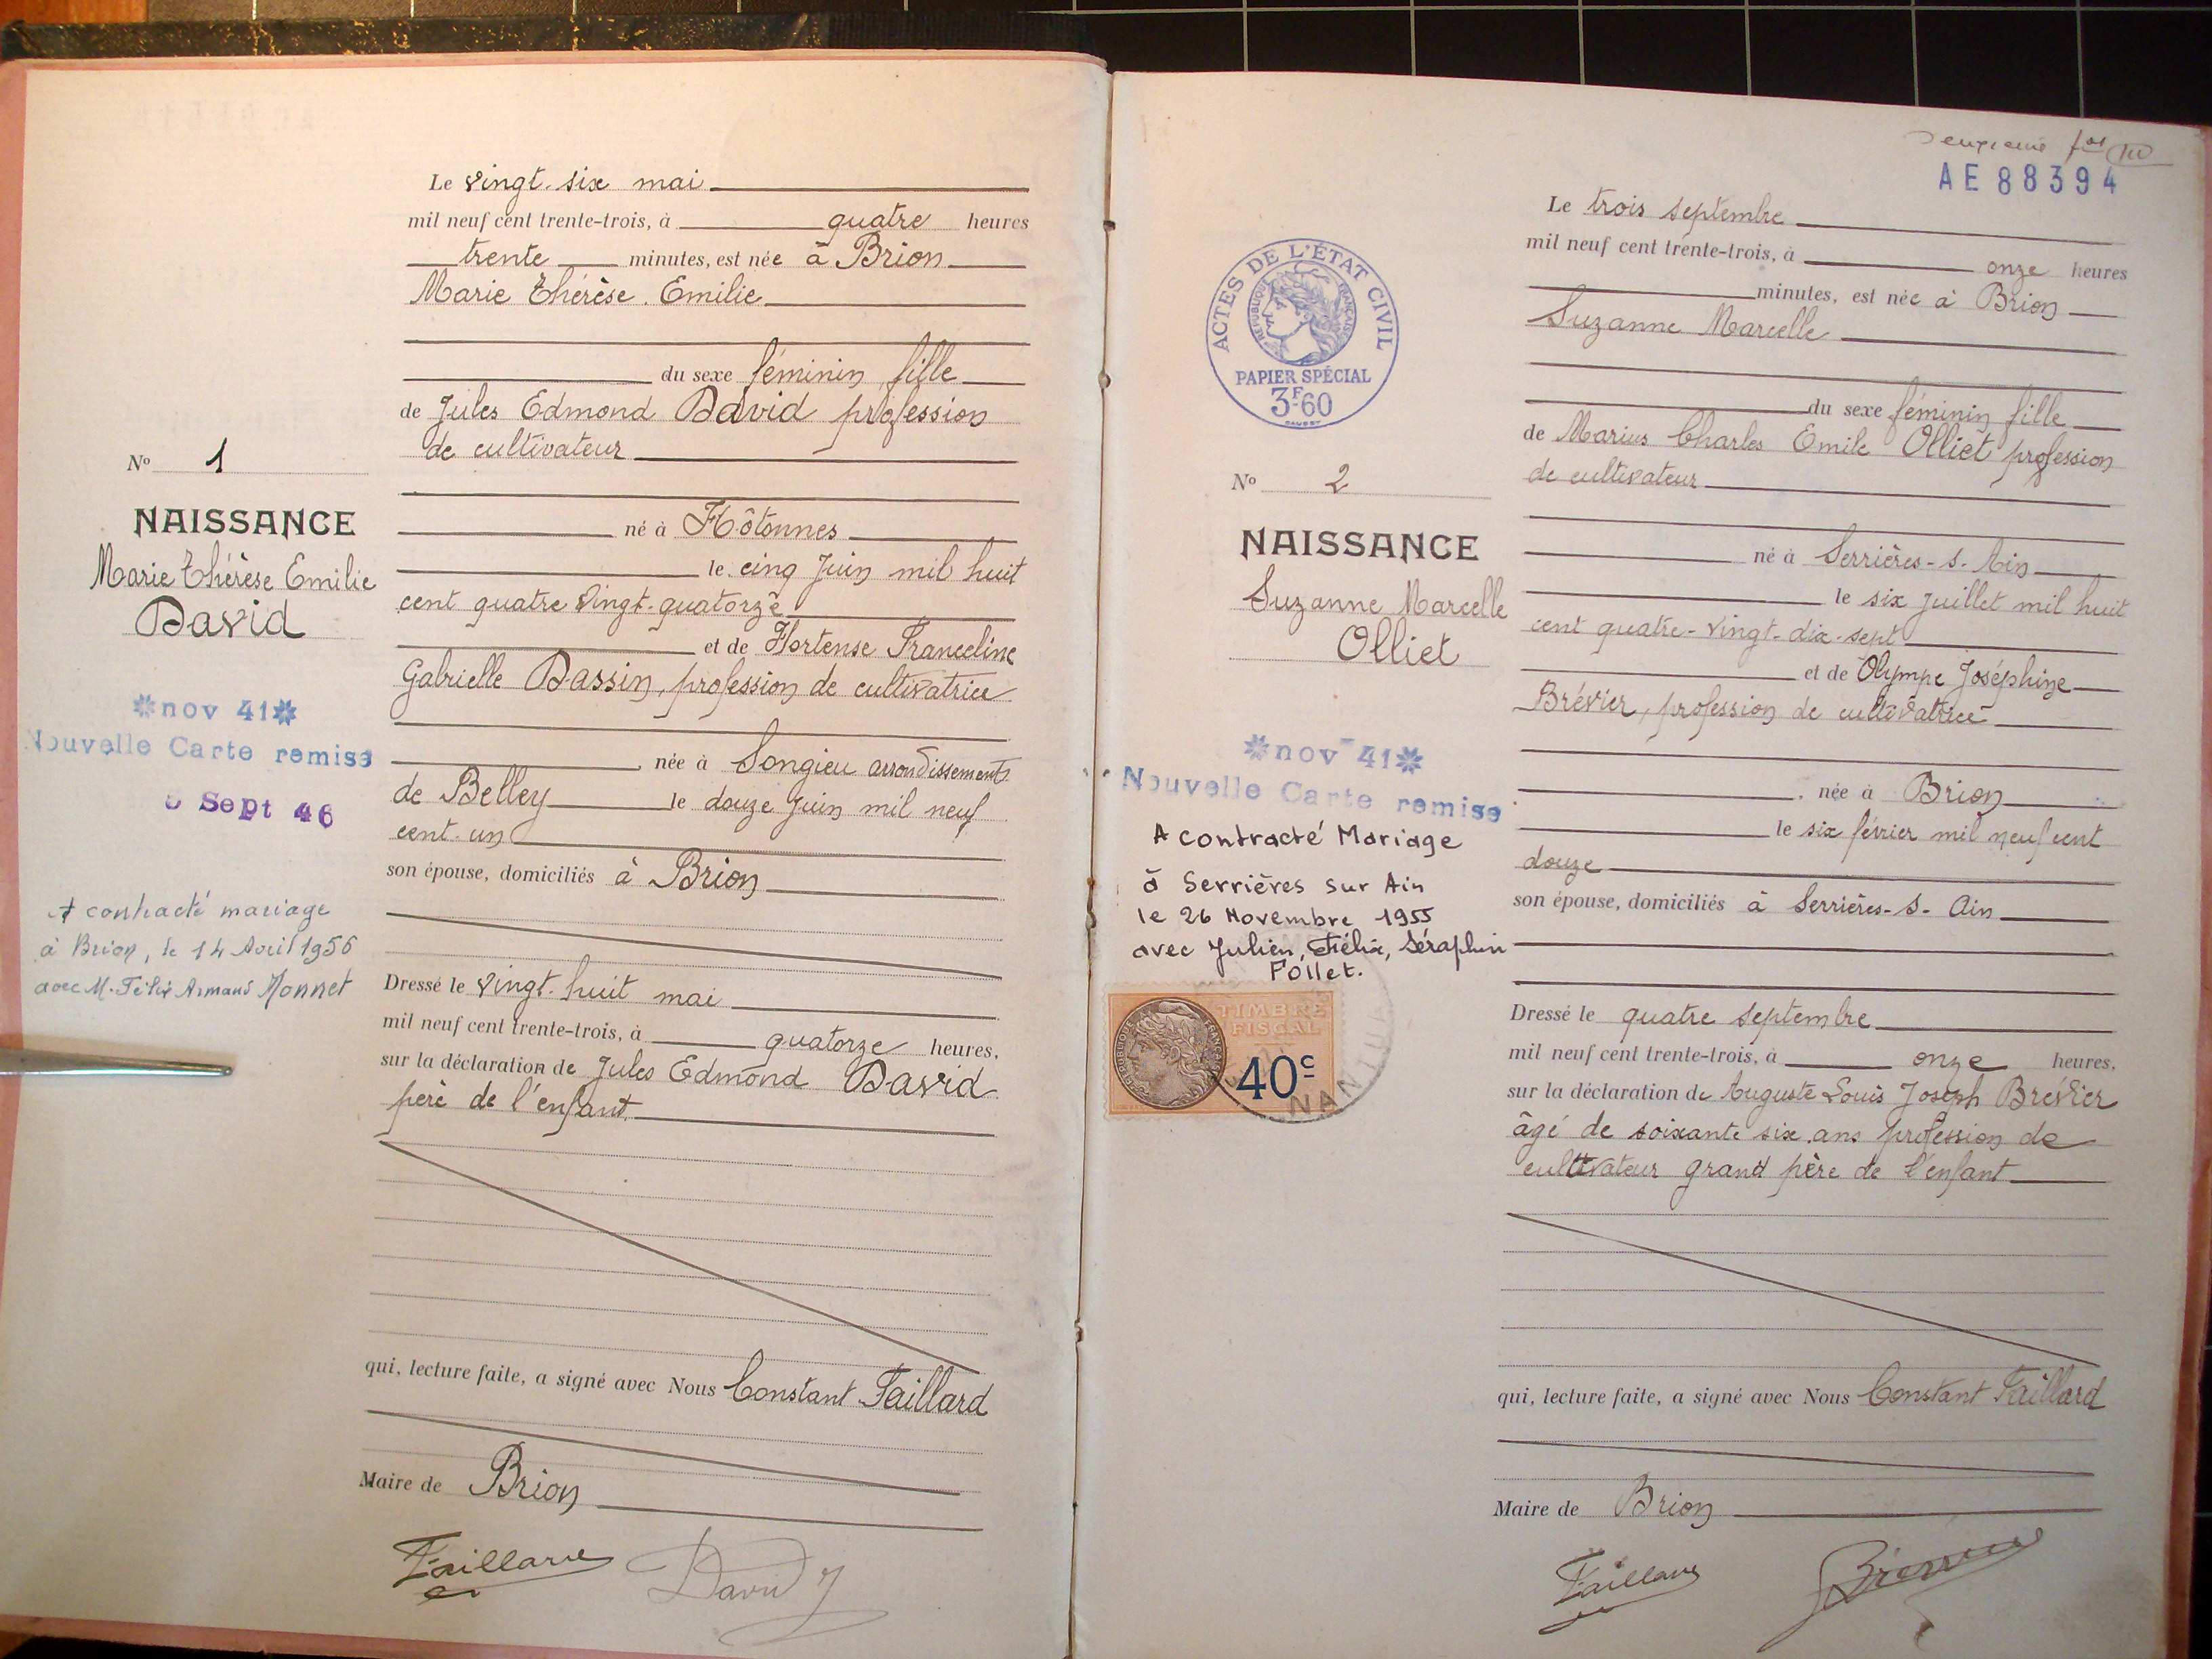 Le vingt-six mai
mil neuf cent trente-trois, à quatre heures
trente minutes, est née à Brion
Marie Thérèse Emilie
du sexe féminin, fille
de Jules Edmond David profession
de cultivateur
né à Hôtonnes
le cinq Juin mil huit
cent quatre vingt-quatorze
et de Hortense Franceline
Gabrielle Dassin, profession de cultivatrice
née à Songieu arrondissement
de Belley le douze Juin mil neuf
cent un
son épouse, domiciliés à Brion
Dressé le vingt-huit mai
mil neuf cent trente-trois, à quatorze heures,
sur la déclaration de Jules Edmond David
père de l'enfant
qui, lecture faite, a signé avec Nous Constant Taillard
Maire de Brion
Taillard David J
No 1
NAISSANCE
Marie Thérèse Emilie
David
*nov 41*
Nouvelle Carte remise
Sept 46
A contracté mariage
à Brion, le 14 Avril 1956
avec M. Félix Armand Monnet
AE 88394
Le trois septembre
mil neuf cent trente-trois, à onze heures
minutes, est née à Brion
Suzanne Marcelle
du sexe féminin fille
de Marius Charles Emile Olliet profession
de cultivateur
né à Serrières-s-Ain
le six juillet mil huit
cent quatre-vingt-dix-sept
et de Olympe Joséphine
Brévier, profession de cultivatrice
née à Brion
le six février mil neuf cent
douze
son épouse, domiciliés à Serrières-s-Ain
Dressé le quatre septembre
mil neuf cent trente-trois, à onze heures,
sur la déclaration de Auguste Louis Joseph Brévier
âgé de soixante six ans profession de
cultivateur grand père de l'enfant
qui, lecture faite, a signé avec Nous Constant Taillard
Maire de Brion
Taillard Brévier
ACTES DE L'ÉTAT CIVIL
RÉPUBLIQUE FRANÇAISE
PAPIER SPÉCIAL
3F60
No 2
NAISSANCE
Suzanne Marcelle
Olliet
*nov 41*
Nouvelle Carte remise
A contracté Mariage
à Serrières sur Ain
le 26 Novembre 1955
avec Julien, Félix, Séraphin
Follet.
TIMBRE
FISCAL
40c
NANTUA